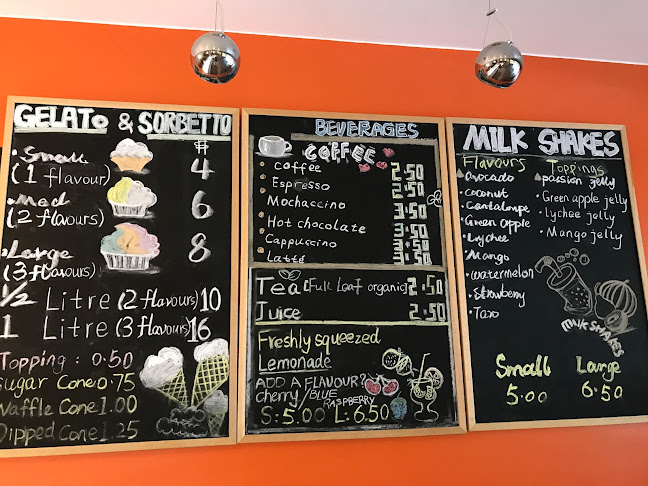 GELATO & SORBETTO
$
• Small (1 flavour) 4
• Med (2 flavours) 6
• Large (3 flavours) 8
1/2 Litre (2 flavours) 10
1 Litre (3 flavours) 16
Topping : 0.50
Sugar Cone 0.75
Waffle Cone 1.00
Dipped Cone 1.25
BEVERAGES
COFFEE
Coffee 2.50
Espresso 2.50
Mochaccino 3.50
Hot chocolate 3.50
Cappuccino 3.50
Latté 3.50
Tea (Full Leaf organic) 2.50
Juice 2.50
Freshly squeezed
Lemonade
ADD A FLAVOUR?
cherry/BLUE RASPBERRY
S: 5.00 L: 6.50
MILK SHAKES
Flavours
Avocado
• coconut
• Cantaloupe
• Green apple
• Lychee
• Mango
• watermelon
• Strawberry
• Taro
Toppings
passion jelly
• Green apple jelly
• lychee jelly
• Mango jelly
MILK SHAKES
Small
5.00
Large
6.50